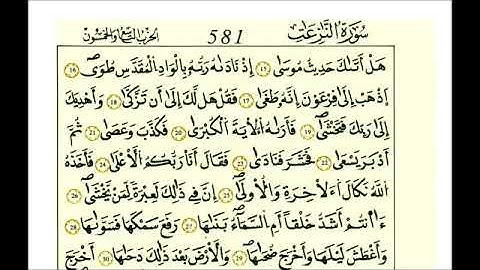 سُورَةُ النَّٰزِعَٰتِ 581 الحزب التاسع والخمسون
هَلْ أَتَىٰكَ حَدِيثُ مُوسَىٰٓ ١٥ إِذْ نَادَىٰهُ رَبُّهُۥ بِالْوَادِ الْمُقَدَّسِ طُوَىٰ ١٦
اَذْهَبْ إِلَىٰ فِرْعَوْنَ إِنَّهُۥ طَغَىٰ ١٧ فَقُلْ هَل لَّكَ إِلَىٰٓ أَن تَزَّكَّىٰ ١٨ وَأَهْدِيَكَ
إِلَىٰ رَبِّكَ فَتَخْشَىٰ ١٩ فَأَرَىٰهُ الْأٓيَةَ الْكُبْرَىٰ ٢٠ فَكَذَّبَ وَعَصَىٰ ٢١ ثُمَّ
أَدْبَرَ يَسْعَىٰ ٢٢ فَحَشَرَ فَنَادَىٰ ٢٣ فَقَالَ أَنَا رَبُّكُمُ الْأَعْلَىٰ ٢٤ فَأَخَذَهُ
اللَّهُ نَكَالَ الْأٓخِرَةِ وَالْأُولَىٰٓ ٢٥ إِنَّ فِي ذَٰلِكَ لَعِبْرَةً لِّمَنْ يَّخْشَىٰٓ ٢٦
ءَا۬نتُمْ أَشَدُّ خَلْقًا أَمِ السَّمَآءُ بَنَىٰهَا ٢٧ رَفَعَ سَمْكَهَا فَسَوَّىٰهَا ٢٨
وَأَغْطَشَ لَيْلَهَا وَأَخْرَجَ ضُحَىٰهَا ٢٩ وَالْأَرْضَ بَعْدَ ذَٰلِكَ دَحَىٰهَآ ٣٠ أَخْرَجَ